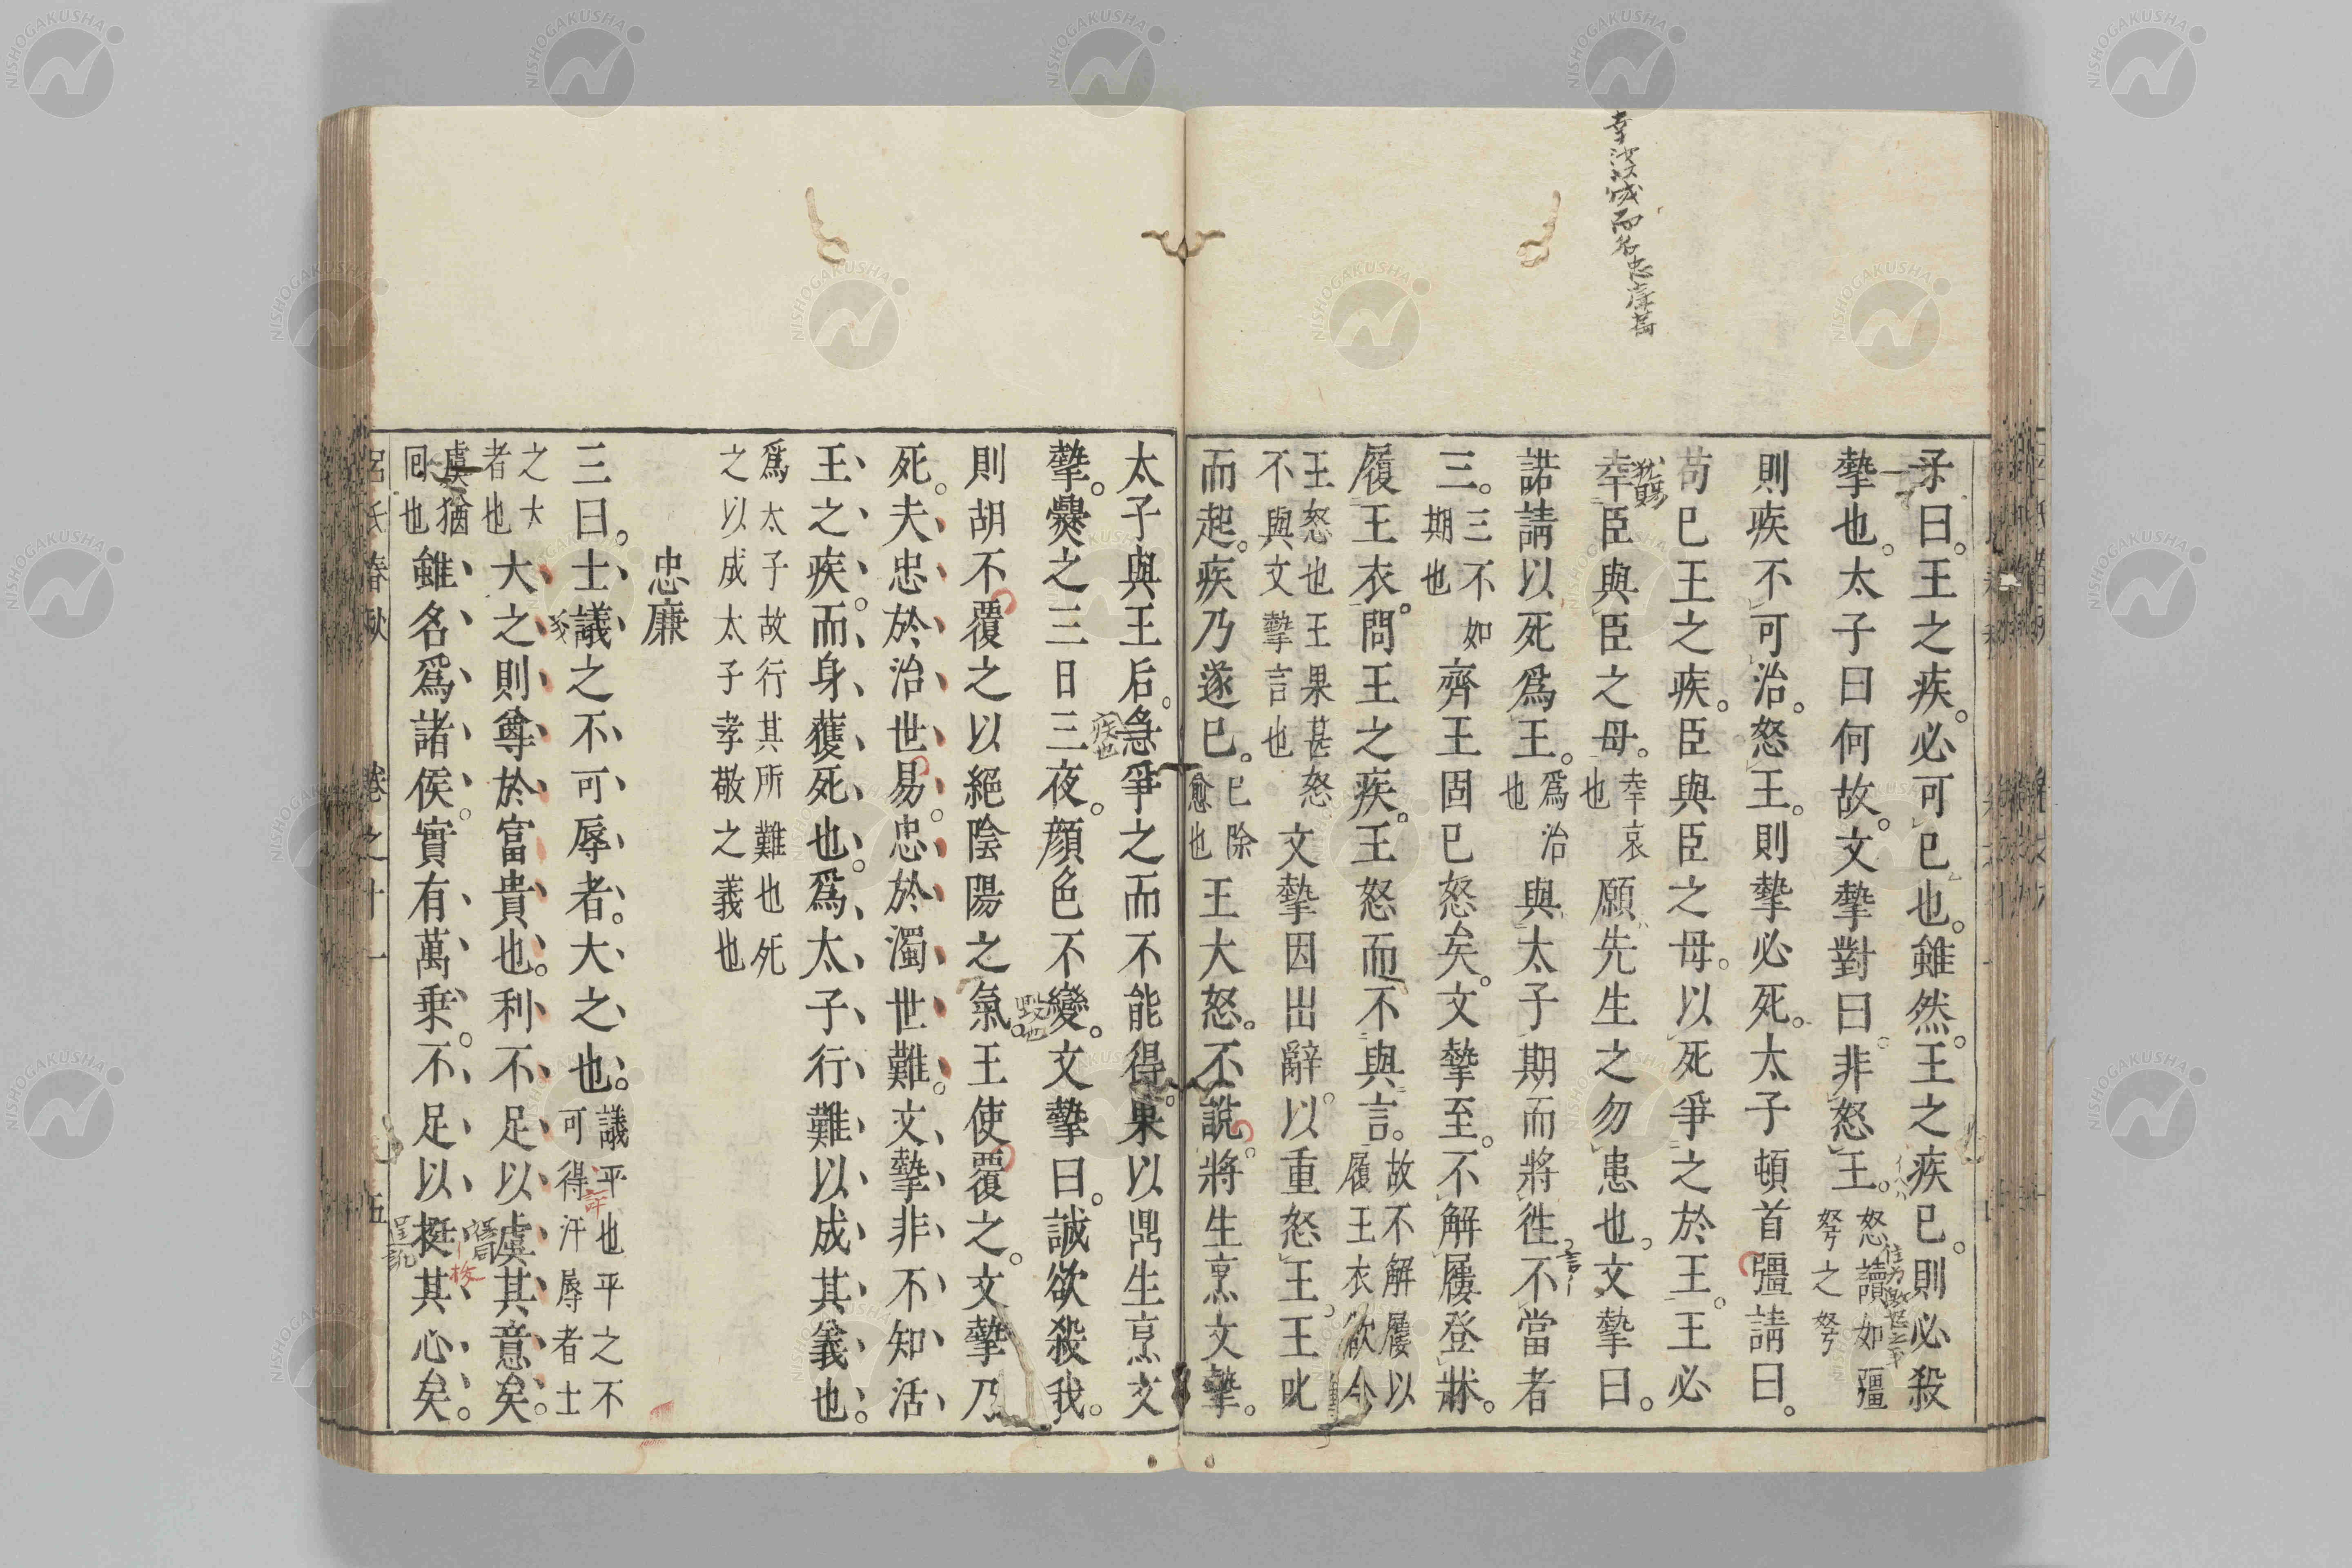 幸汝以
子曰。王之疾。必可已也。雖然。王之疾已。則必殺
摯也。太子曰何故。文摯對曰。非怒王。怒讀如彊弩之弩
則疾不可治。怒王。則摯必死。太子頓首彊請曰。
苟已王之疾。臣與臣之母。以死爭之於王。王必
幸臣與臣之母。幸哀也願先生之勿患也。文摯曰。
諾請以死爲王。爲治也與太子期而將徃。不當者
三。三不如期也齊王固已怒矣。文摯至。不解屨登牀。
履王衣。問王之疾。王怒而不與言。故不解屨以履王衣欲令
王怒也王果甚怒不與文摯言也文摯因出辭。以重怒王。王叱
而起。疾乃遂已。已除愈也王大怒。不說。將生烹文摯。
太子與王后。急爭之而不能得。果以鼎生烹文
摯。爨之三日三夜。顏色不變。文摯曰。誠欲殺我。
則胡不覆之以絕陰陽之氣。王使覆之。文摯乃
死。夫忠於治世易。忠於濁世難。文摯非不知活
王之疾。而身獲死也。爲太子行難以成其義也。
爲太子故行其所難也死之以成太子孝敬之義也
忠廉
三曰。士議之不可辱者。大之也。議平也平之不可得汙辱者士
之大者也大之則尊於富貴也。利不足以虞其意矣。
虞猶回也雖名爲諸侯。實有萬乗。不足以挺其心矣。
呂氏春秋 卷之十一 五